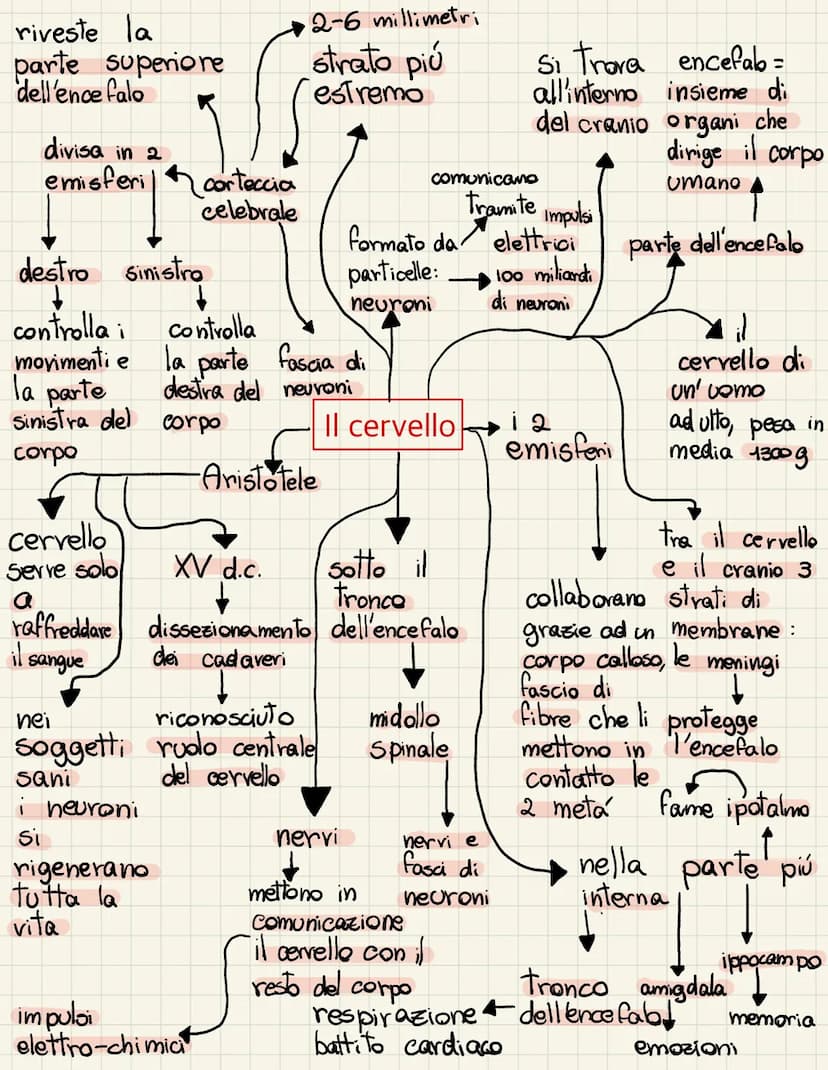 riveste la
parte superiore
dell'encefalo
2-6 millimetri
strato piú
estremo
si trova
all'interno
del cranio
encefalo =
insieme di
organi che
dirige il corpo
umano
divisa in 2
emisferi
corteccia
celebrale
comunicano
tramite impulsi
elettrici
formato da
particelle:
neuroni
100 miliardi
di neuroni
parte dell'encefalo
destro
sinistro
controlla i
movimenti e
la parte
sinistra del
corpo
controlla
la parte
destra del
corpo
fascia di
neuroni
il
cervello di
un'uomo
adulto, pesa in
media 1300g
Il cervello
i 2
emisferi
Aristotele
cervello
serve solo
a
raffreddare
il sangue
XV d.c.
dissezionamento
dei cadaveri
riconosciuto
ruolo centrale
del cervello
sotto il
tronco
dell'encefalo
midollo
spinale
nervi e
fasci di
neuroni
collaborano
grazie ad un
corpo calloso,
fascio di
fibre che li
mettono in
contatto le
2 metá
tra il cervello
e il cranio 3
strati di
membrane:
le meningi
protegge
l'encefalo
nei
soggetti
sani
i neuroni
si
rigenerano
tutta la
vita
nervi
mettono in
comunicazione
il cervello con il
resto del corpo
impulsi
elettro-chimici
fame ipotalmo
nella parte piú
interna
ippocampo
memoria
tronco
dell'encefalo
amigdala
emozioni
respirazione
battito cardiaco